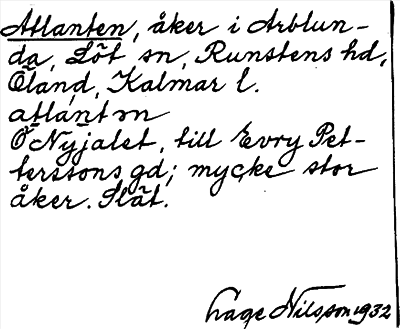 Atlanten, åker i Arblun-
da, Löt sn, Runstens hd,
Öland, Kalmar l.
atlántən
Ö Nyjalet, till Evry Pet-
terssons gd; mycke stor
åker. Slät.
Lage Nilsson 1932